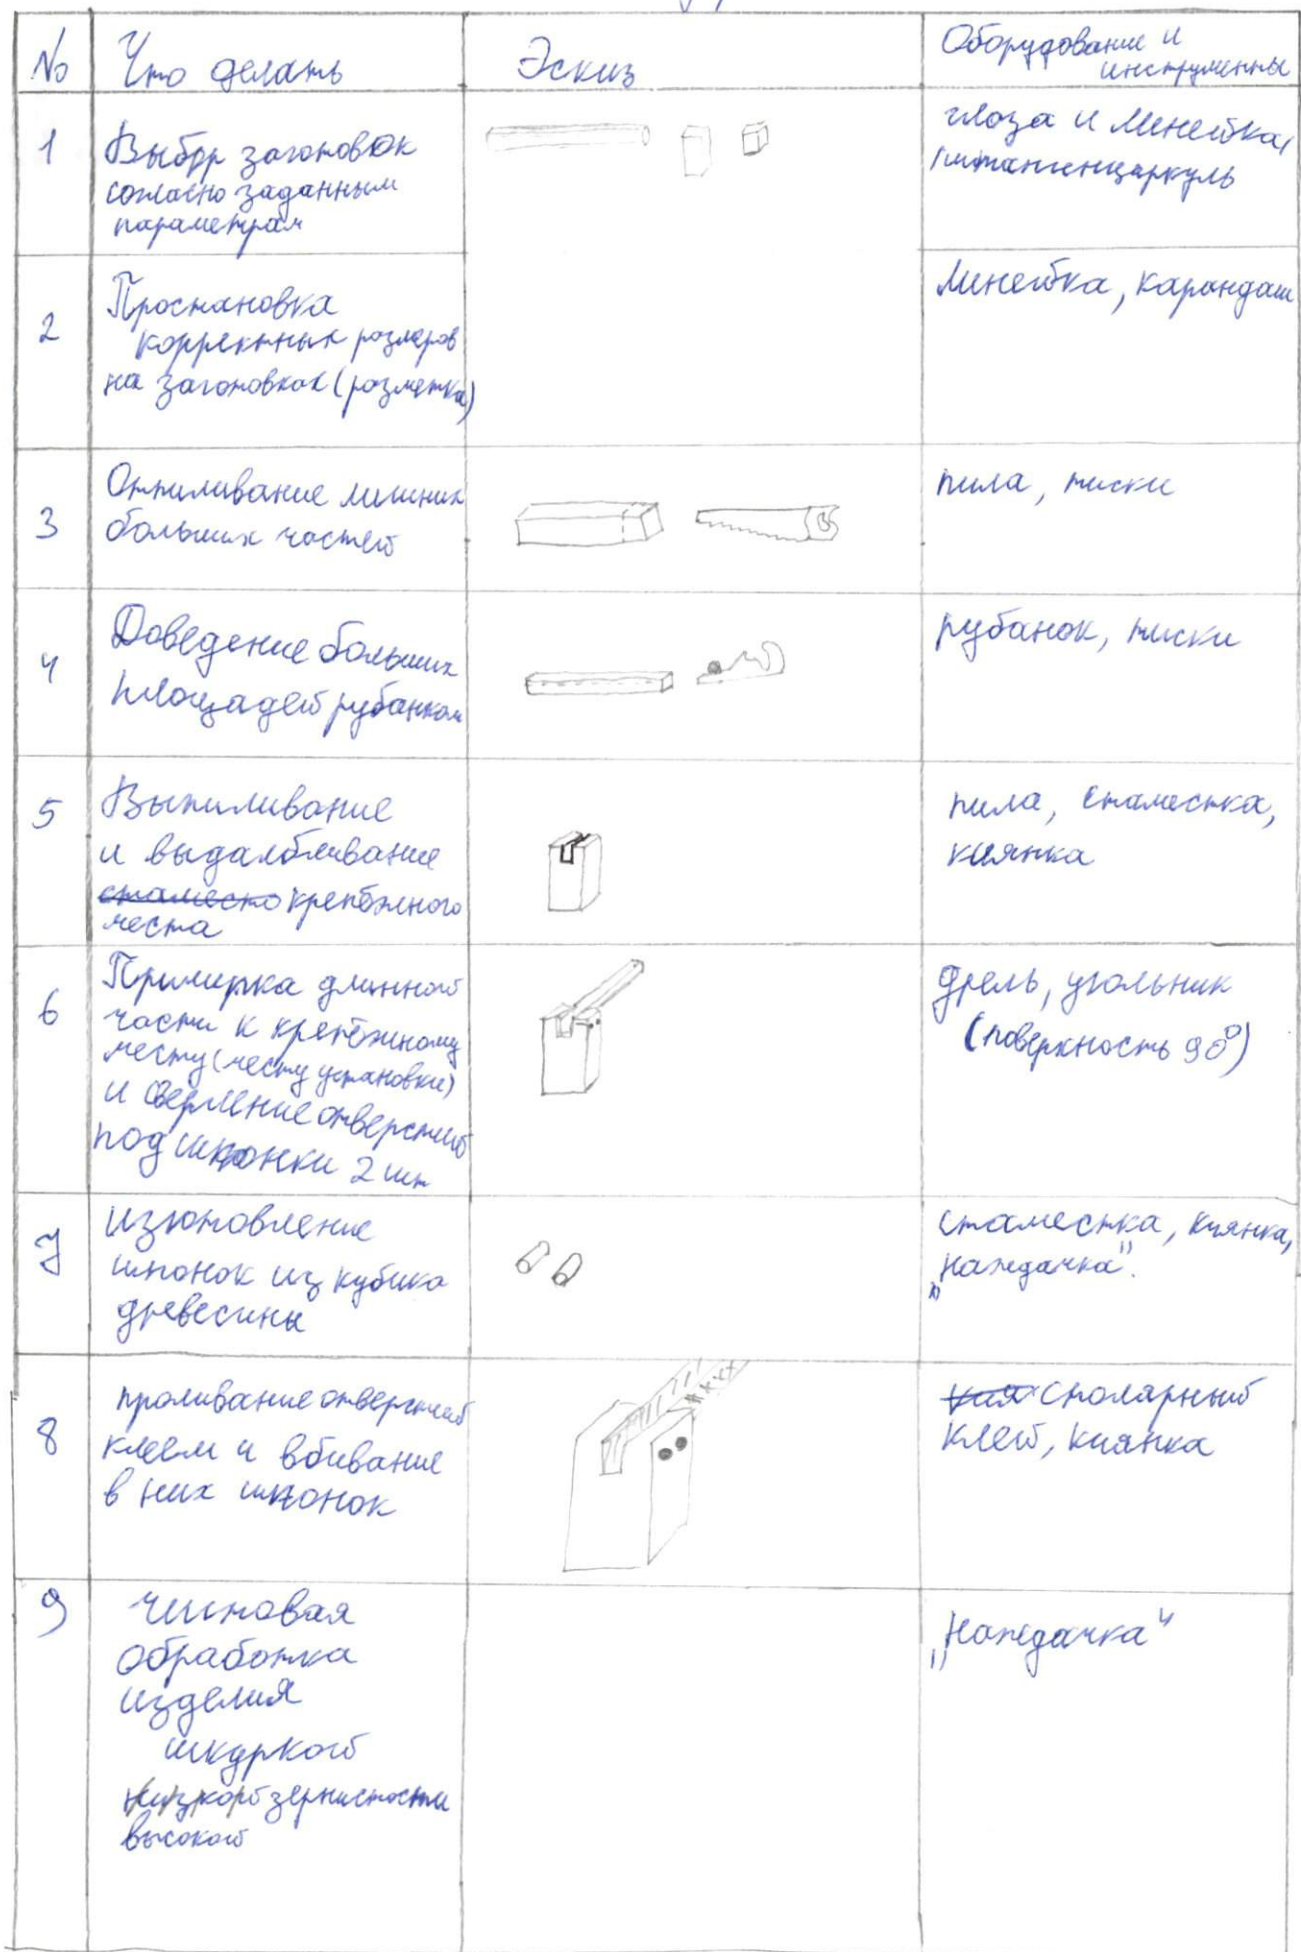 № Что делать Эскиз Оборудование и
инструменты
1 Выбор заготовок
согласно заданным
параметрам
глаза и линейка,
штангенциркуль
2 Простановка
корректных размеров
на заготовках (разметка)
линейка, карандаш
3 Отпиливание лишних
больших частей
пила, тиски
4 Доведение больших
площадей рубанком
рубанок, тиски
5 Выпиливание
и выдалбливание
стамеско крепёжного
места
пила, стамеска,
киянка
6 Примирка длинной
части к крепёжному
месту (месту установки)
и сверление отверстий
под шконки 2 шт
дрель, угольник
(поверхность 90°)
7 изготовление
шпонок из кубика
древесины
стамеска, киянка,
„наждачка".
8 проливание отверстий
клеем и вбивание
в них шконок
столярный
клей, киянка
9 чистовая
обработка
изделия
шкуркой
низкой зернистости
высокой
„наждачка"